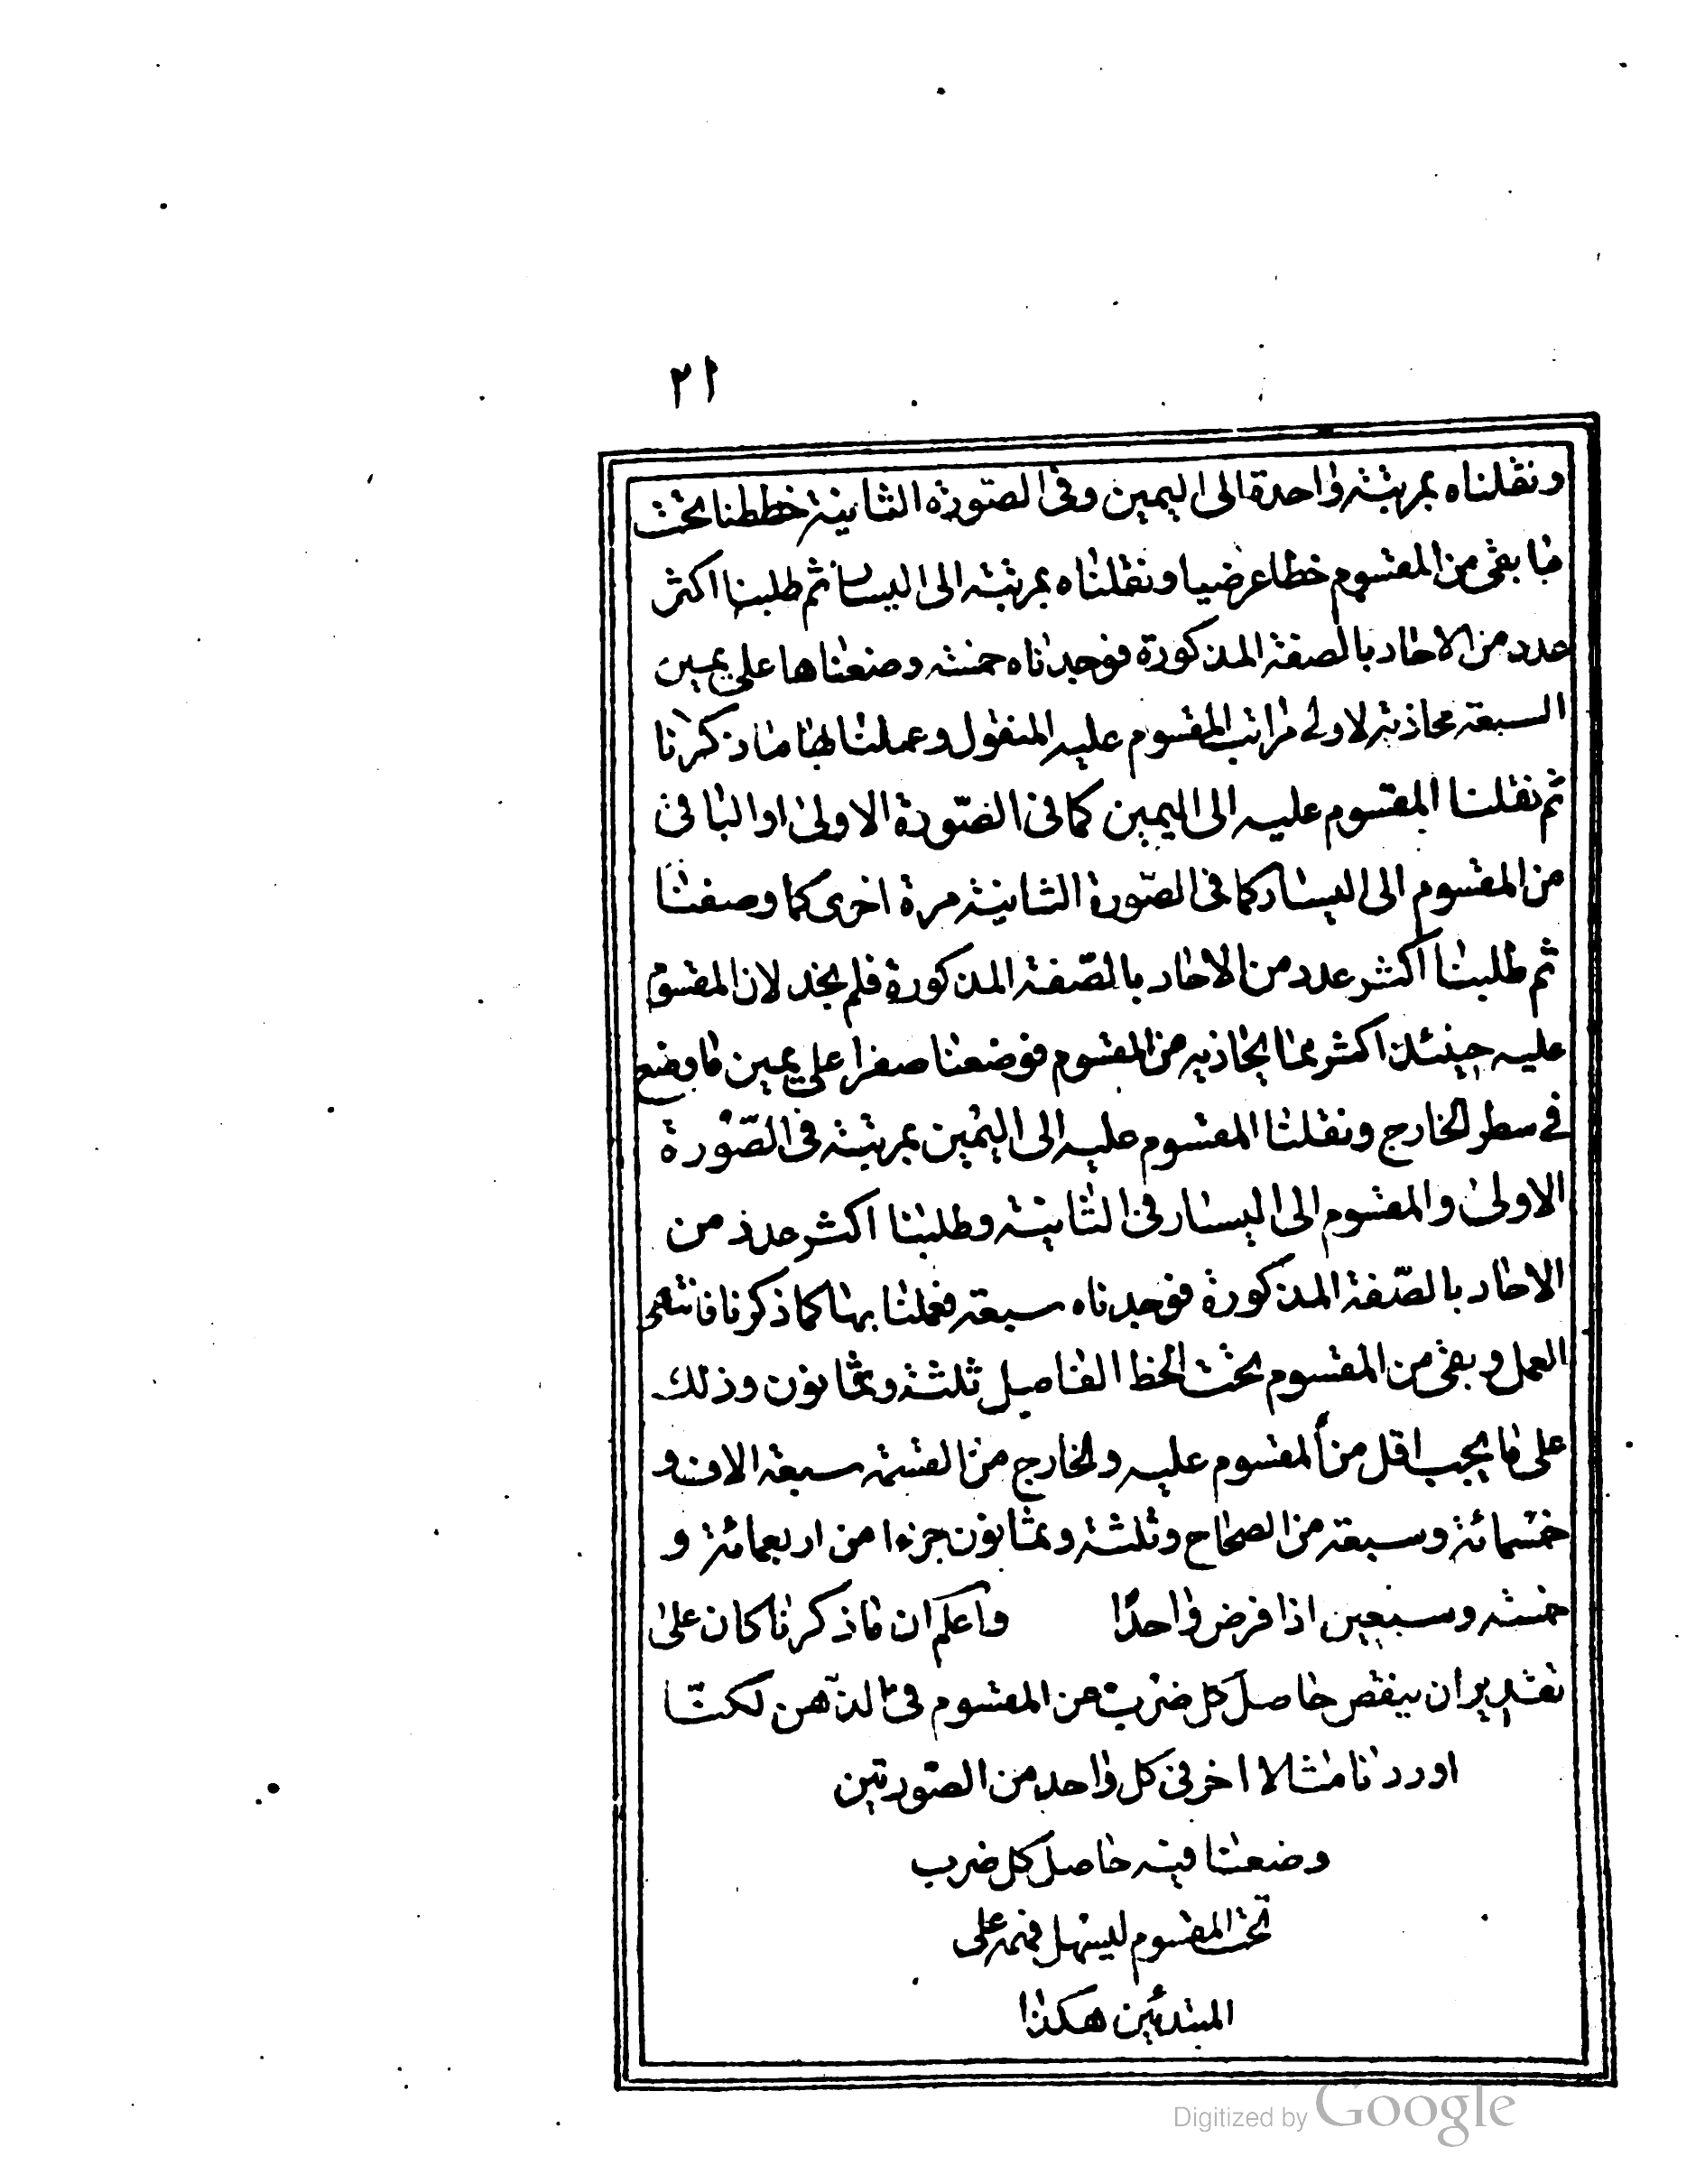 ٢١
ونقلناه بمرتبة واحدة الى اليمين وفى الصّورة الثانية خططنا تحت
ما بقى من المقسوم خطا عرضيا ونقلناه بمرتبة الى اليسار ثم طلبنا اكثر
عدد من الاحاد بالصفة المذكورة فوجدناه خمسة وضعناها على يمين
السبعة محاذية لاولى مراتب المقسوم عليه المنقول وعملنا بها ما ذكرنا
ثم نقلنا المقسوم عليه الى اليمين كما فى الصّورة الاولى او الباقى
من المقسوم الى اليسار كما فى الصّورة الثانية مرة اخرى كما وصفنا
ثم طلبنا اكثر عدد من الاحاد بالصّفة المذكورة فلم نجد لان المقسوم
عليه حينئذ اكثر مما يحاذيه من المقسوم فوضعنا صفرا على يمين ما وضع
فى سطر الخارج ونقلنا المقسوم عليه الى اليمين بمرتبة فى الصّورة
الاولى والمقسوم الى اليسار فى الثانية وطلبنا اكثر عدد من
الاحاد بالصّفة المذكورة فوجدناه سبعة فعملنا بها كما ذكرنا فانتهى
العمل وبقى من المقسوم تحت الخط الفاصل ثلثة وثمانون وذلك
على ما يجب اقل من المقسوم عليه والخارج من القسمة سبعة الاف و
خمسمائة وسبعة من الصحاح وثلثة وثمانون جزءا من اربعمائة و
خمسة وسبعين اذا فرض واحدًا واعلم ان ما ذكرنا كان على
تقدير ان ينقص حاصل كل ضرب من المقسوم فى الذّهن لكنّا
اوردنا مثالا اخر فى كل واحد من الصّورتين
وضعنا فيه حاصل كل ضرب
تحت المقسوم ليسهل فهمه على
المبتدئين هكذا
Digitized by Google